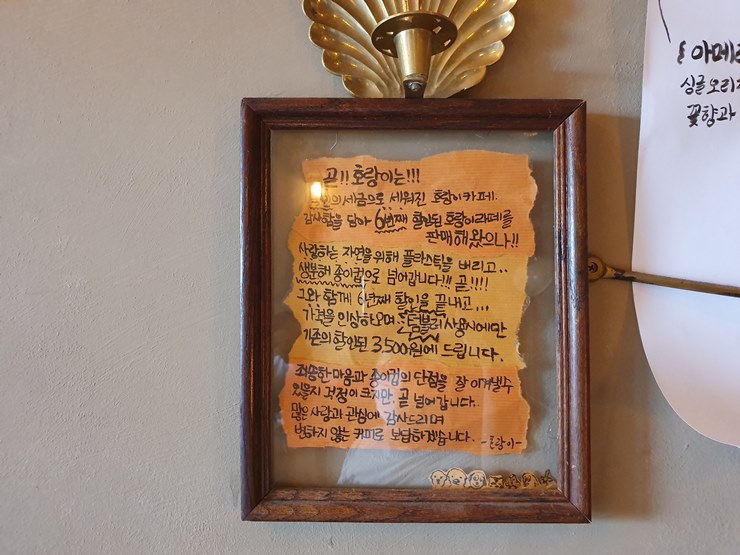 곧!! 호랑이는!!!
세금으로 세워진 호랑이카페.
감사함을 담아 6년째 할인된 호랑이라떼를
판매해 왔으나!!
사랑하는 자연을위해 플라스틱을 버리고..
생분해 종이컵으로 넘어갑니다!!! 곧!!!!
그와 함께 6년째 할인을 끝내고...
가격을 인상하오며 텀블러 사용시에만
기존의 할인된 3,500원에 드립니다.
죄송한 마음과 종이컵의 단점을 잘 이겨낼수
있을지 걱정이 크지만, 곧 넘어갑니다..
많은 사랑과 관심에 감사드리며
변하지 않는 커피로 보답하겠습니다. -호랑이-
아메리
싱글오리지
꽃향과